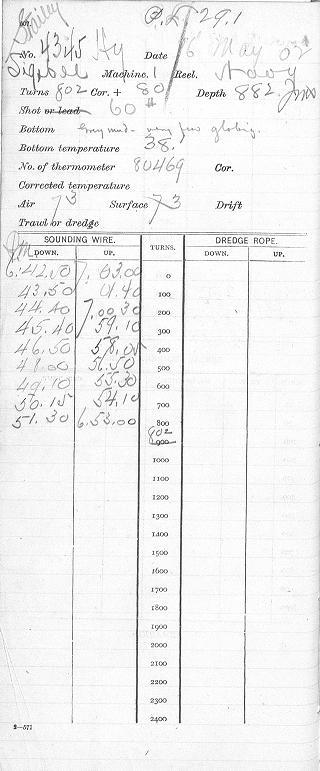 Shirley
No. 4345 Hy Date 6 May 02
Sigsbee Machine. 1 Reel. Navy
Turns 802 Cor. + 80 Depth 882 fms
Shot or lead 60 #
Bottom Grey mud - very few globig.
Bottom temperature 38.
No. of thermometer 80469 Cor.
Corrected temperature
Air 73 Surface 73 Drift
Trawl or dredge
SOUNDING WIRE. TURNS. DREDGE ROPE.
DOWN. UP. DOWN. UP.
6.42.50 7.03.00 0
43.50 01.40 100
44.40 7.00.30 200
45.40 59.10 300
46.50 58.05 400
48.00 56.50 500
49.10 55.30 600
50.15 54.10 700
51.30 6.53.00 800
802
900
1000
1100
1200
1300
1400
1500
1600
1700
1800
1900
2000
2100
2200
2300
2400
2—571